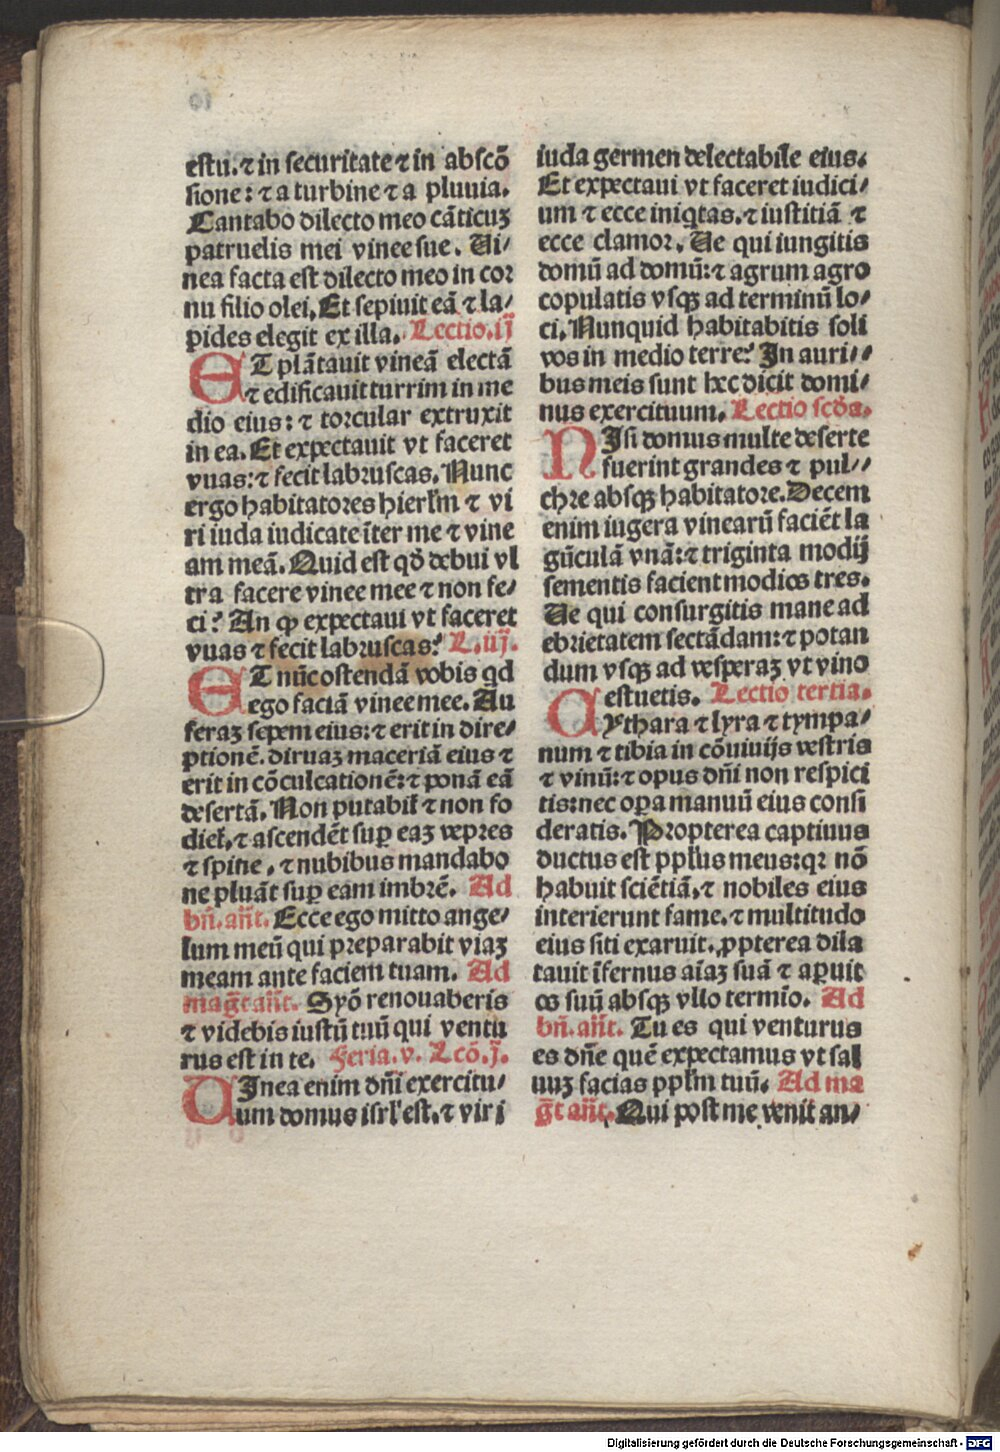 estu. ⁊ in securitate ⁊ in abscō
sione: ⁊ a turbine ⁊ a pluuia.
Cantabo dilecto meo cāticuꝫ
patruelis mei vinee sue. Ui⸗
nea facta est dilecto meo in coꝛ
nu filio olei. Et sepiuit eā ⁊ la⸗
pides elegit ex illa. Lectio.ij
ET plātauit vineā electā
⁊ edificauit turrim in me
dio eius: ⁊ toꝛcular extruxit
in ea. Et expectauit vt faceret
vuas: ⁊ fecit labruscas. Nunc
ergo habitatoꝛes hierłm ⁊ vi
ri iuda iudicate īter me ⁊ vine
am meā. Quid est qď debui vl
tra facere vinee mee ⁊ non fe⸗
ci? An ꝙ expectaui vt faceret
vuas ⁊ fecit labruscas? L.iij.
ET nūc ostendā vobis qd
ego faciā vinee mee. Au
feraꝫ sepem eius: ⁊ erit in dire⸗
ptionē. diruaꝫ maceriā eius ⁊
erit in cōculcationē: ⁊ ponā eā
desertā. Non putabiľ ⁊ non fo
dieľ. ⁊ ascendēt suꝑ eaꝫ vepres
⁊ spine. ⁊ nubibus mandabo
ne pluāt suꝑ eam imbrē. Ad
bn̄. an̄t. Ecce ego mitto ange⸗
lum meū qui pꝛeparabit viaꝫ
meam ante faciem tuam. Ad
maḡt an̄t. Syō renouaberis
⁊ videbis iustū tuū qui ventu
rus est in te. Feria.v. Lcō.j.
UInea enim dn̄i exercitu⸗
um domus isrl' est. ⁊ viri
iuda germen delectabile eius.
Et expectaui vt faceret iudici⸗
um ⁊ ecce iniqtas. ⁊ iustitiā ⁊
ecce clamoꝛ. Ue qui iungitis
domū ad domū: ⁊ agrum agro
copulatis vsqꝫ ad terminū lo⸗
ci. Nunquid habitabitis soli
vos in medio terre? In auri⸗
bus meis sunt hec dicit domi⸗
nus exercituum. Lectio scďa.
NIsi domus multe deserte
fuerint grandes ⁊ pul⸗
chꝛe absqꝫ habitatoꝛe. Decem
enim iugera vinearū faciēt la
gūculā vnā: ⁊ triginta modij
sementis facient modios tres.
Ue qui consurgitis mane ad
ebrietatem sectādam: ⁊ potan
dum vsqꝫ ad vesperaꝫ vt vino
estuetis. Lectio tertia.
CYthara ⁊ lyra ⁊ tympa⸗
num ⁊ tibia in cōuiuijs vestris
⁊ vinū: ⁊ opus dn̄i non respici
tis: nec oꝑa manuū eius consi
deratis. Pꝛopterea captiuus
ductus est ppłus meus: qꝛ nō
habuit sciētiā. ⁊ nobiles eius
interierunt fame. ⁊ multitudo
eius siti exaruit. ꝓpterea dila
tauit īfernus aīaꝫ suā ⁊ aꝑuit
os suū absqꝫ vllo termio. Ad
bn̄. an̄t. Tu es qui venturus
es dn̄e quē expectamus vt sal
uuꝫ facias ppłm tuū. Ad ma
ḡt an̄t. Qui post me venit an⸗
Digitalisierung gefördert durch die Deutsche Forschungsgemeinschaft - DFG